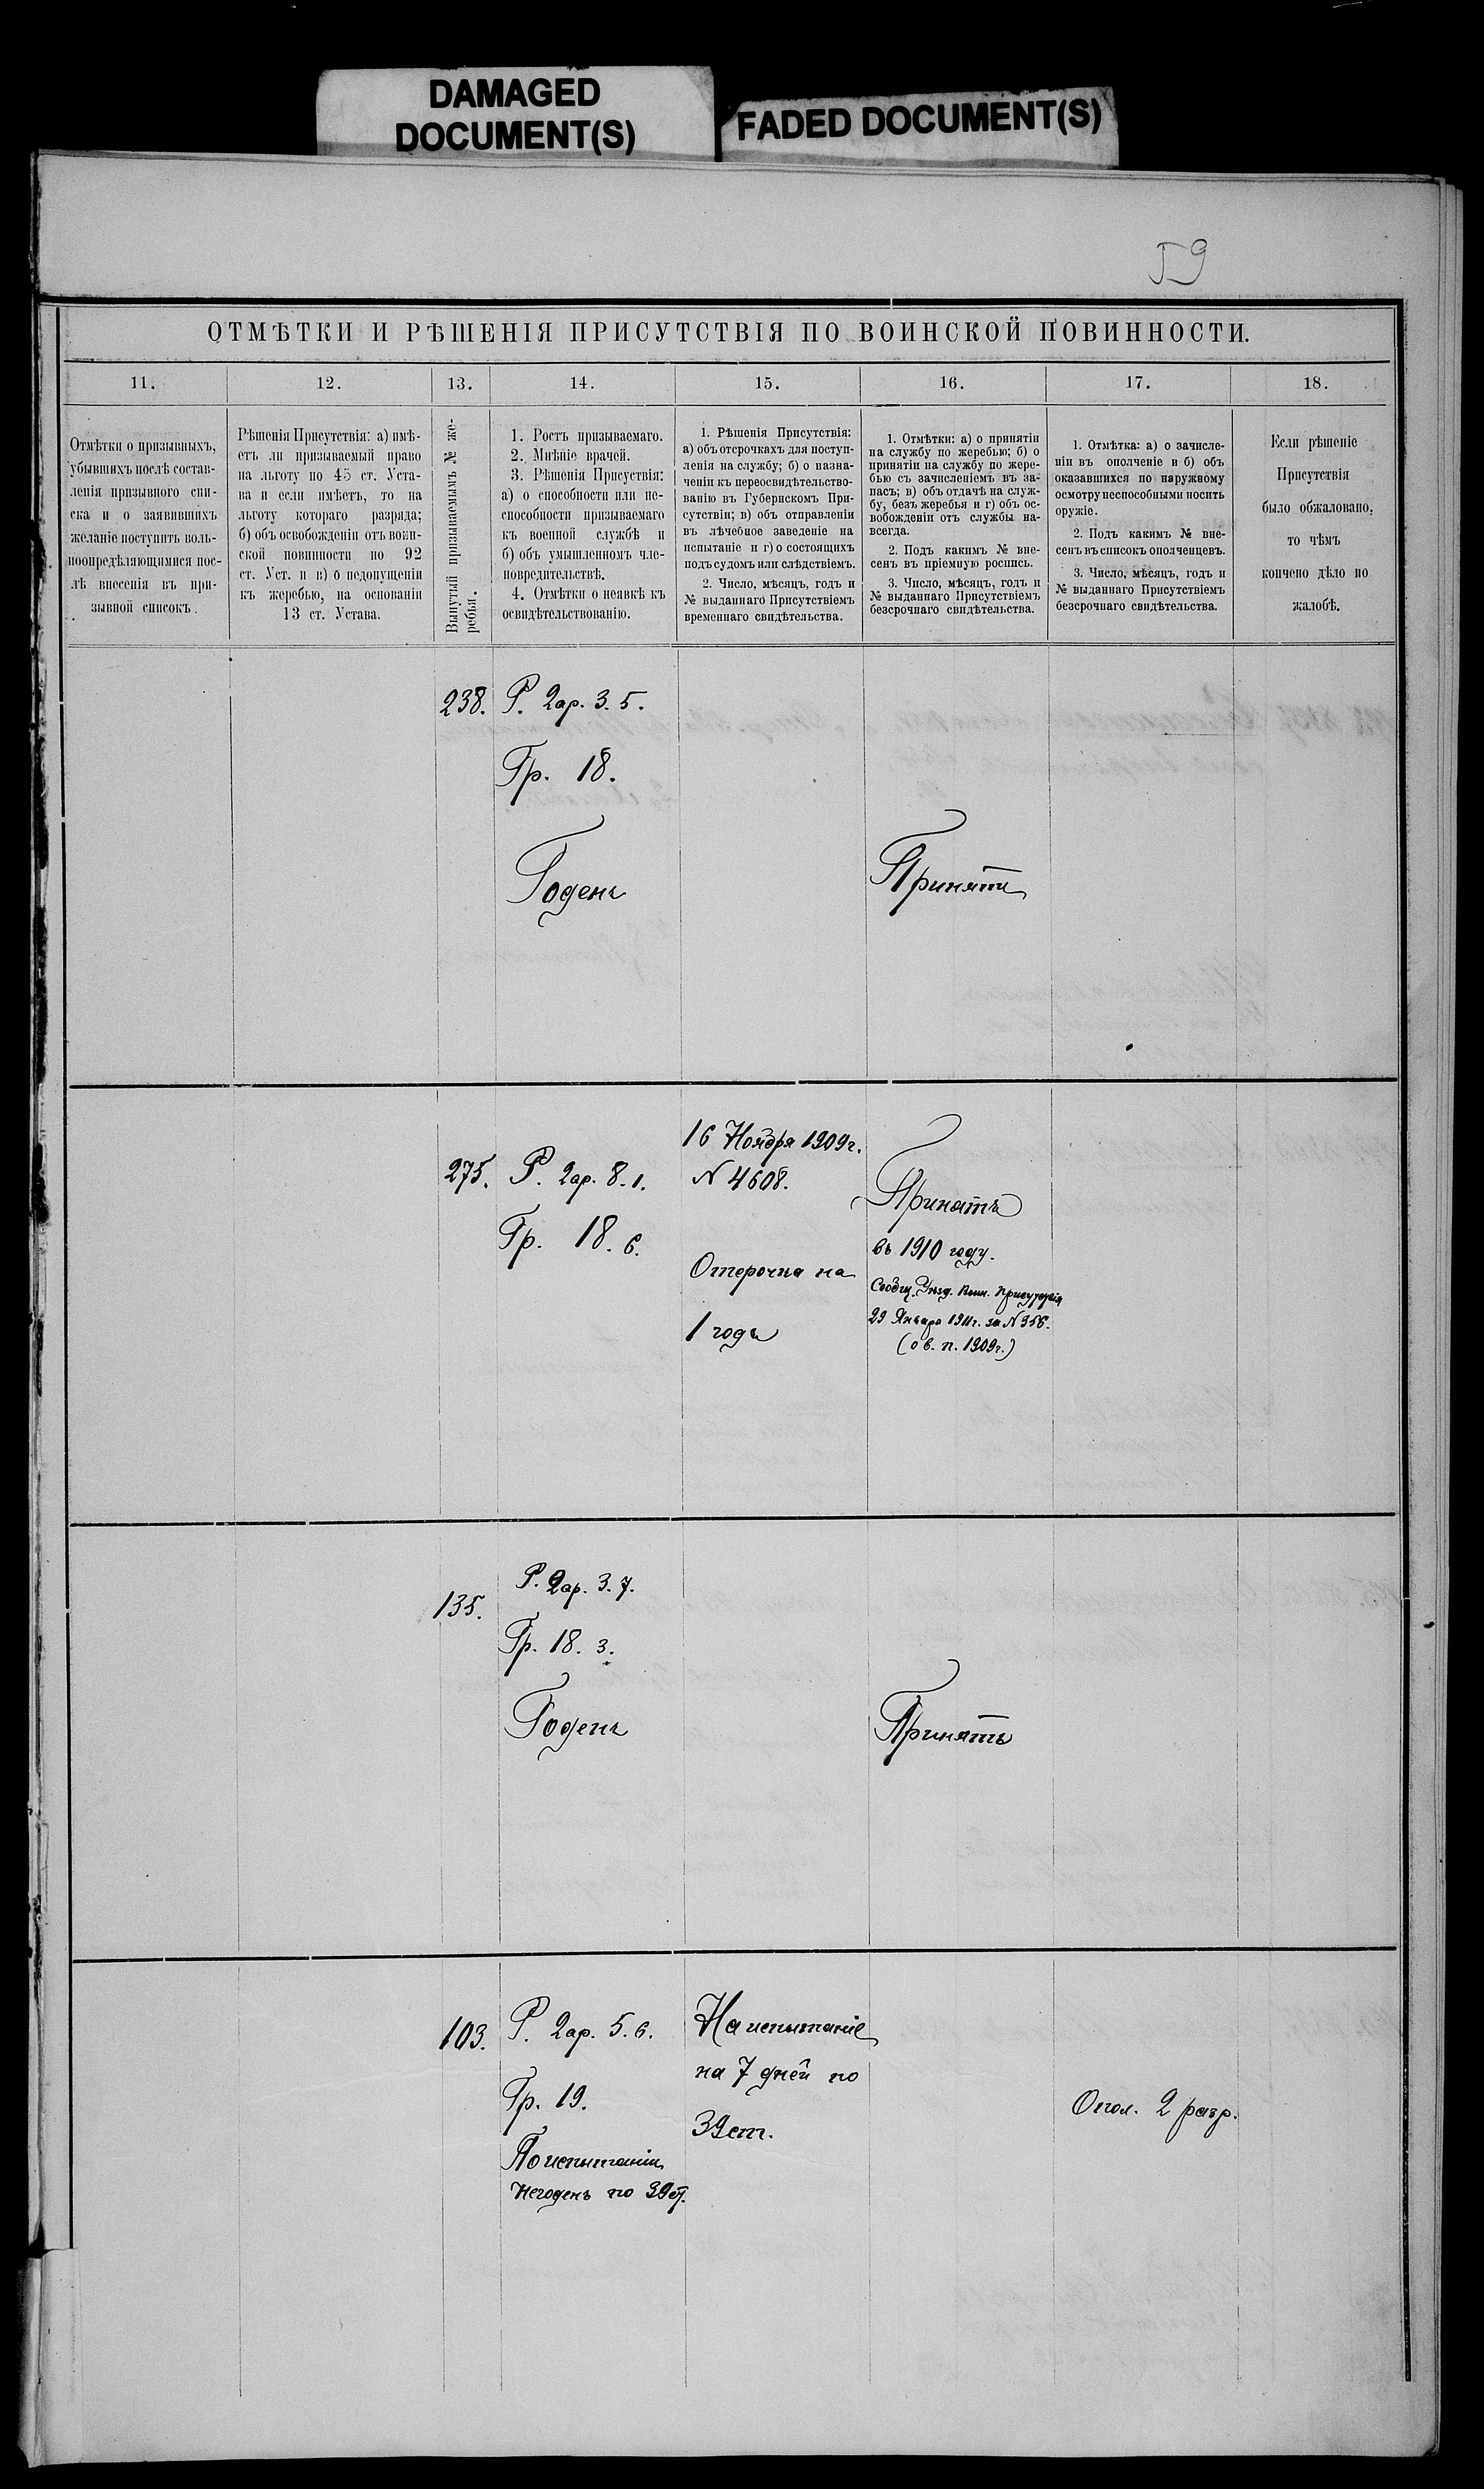 DAMAGED
DOCUMENT(S)
FADED DOCUMENT(S)
59
ОТМѢТКИ И РѢШЕНІЯ ПРИСУТСТВІЯ ПО ВОИНСКОЙ ПОВИННОСТИ.
11.
12.
13.
14.
15.
16.
17.
18.
Отмѣтки о призывныхъ,
убывшихъ послѣ состав-
ленія призывного спи-
ска и о заявившихъ
желаніе поступить воль-
ноопредѣляющимися пос-
лѣ внесенія въ при-
зывной списокъ.
Рѣшенія Присутствія: а) имѣ-
етъ ли призываемый право
на льготу по 45 ст. Уста-
ва и если имѣетъ, то на
льготу котораго разряда;
б) объ освобожденіи отъ воин-
ской повинности по 92
ст. Уст. и в) о недопущеніи
къ жеребью, на основаніи
13 ст. Устава.
Вынутый призываемымъ № же-
ребья.
1. Ростъ призываемаго.
2. Мнѣніе врачей.
3. Рѣшенія Присуствія:
а) о способности или не-
способности призываемаго
къ военной службѣ и
б) объ умышленномъ чле-
новредительствѣ.
4. Отмѣтки о неявкѣ къ
освидѣтельствованію.
1. Рѣшенія Присутствія:
а) объ отсрочкахъ для поступ-
ленія на службу; б) о назна-
ченіи къ переосвидѣтельство-
ванію въ Губернскомъ При-
сутствіи; в) объ отправленіи
въ лѣчебное заведеніе на
испытаніе и г) о состоящихъ
подъ судомъ или слѣдствіемъ.
2. Число, мѣсяцъ, годъ и
№ выданнаго Присутствіемъ
временнаго свидѣтельства.
1. Отмѣтки: а) о принятіи
на службу по жеребью; б) о
принятіи на службу по жере-
бью съ зачисленіемъ въ за-
пасъ; в) объ отдачѣ на служ-
бу, безъ жеребья и г) объ ос-
вобожденіи отъ службы на-
всегда.
2. Подъ какимъ № вне-
сенъ въ пріемную роспись.
3. Число, мѣсяцъ, годъ и
№ выданнаго Присутствіемъ
безсрочнаго свидѣтельства.
1. Отмѣтка: а) о зачисле-
ніи въ ополченіе и б) объ
оказавшихся по наружному
осмотру неспособными носить
оружіе.
2. Подъ какимъ № вне-
сенъ въ списокъ ополченцевъ.
3. Число, мѣсяцъ, годъ и
№ выданнаго Присутствіемъ
безсрочнаго свидѣтельства.
Если рѣшеніе
Присутствія
было обжаловано,
то чѣмъ
кончено дѣло по
жалобѣ.
238.
Р. 2ар. 3. 5.
Гр. 18.
Годенъ
Принятъ
275.
Р. 2ар. 8. 1.
Гр. 18. 6.
16 Ноября 1909г.
N 4608.
Отсрочка на
1 годъ
Принятъ
въ 1910 году.
Сообщ. Уѣзд. Воин. Присутствія
29 Января 1911г. за N 356.
(о в. п. 1909г.)
135.
Р. 2ар. 3. 7.
Гр. 18. 3.
Годенъ
Принятъ
103.
Р. 2ар. 5. 6.
Гр. 19.
По испытаніи
негоденъ по 39 ст.
На испытаніе
на 7 дней по
39 ст.
Опол. 2 разр.